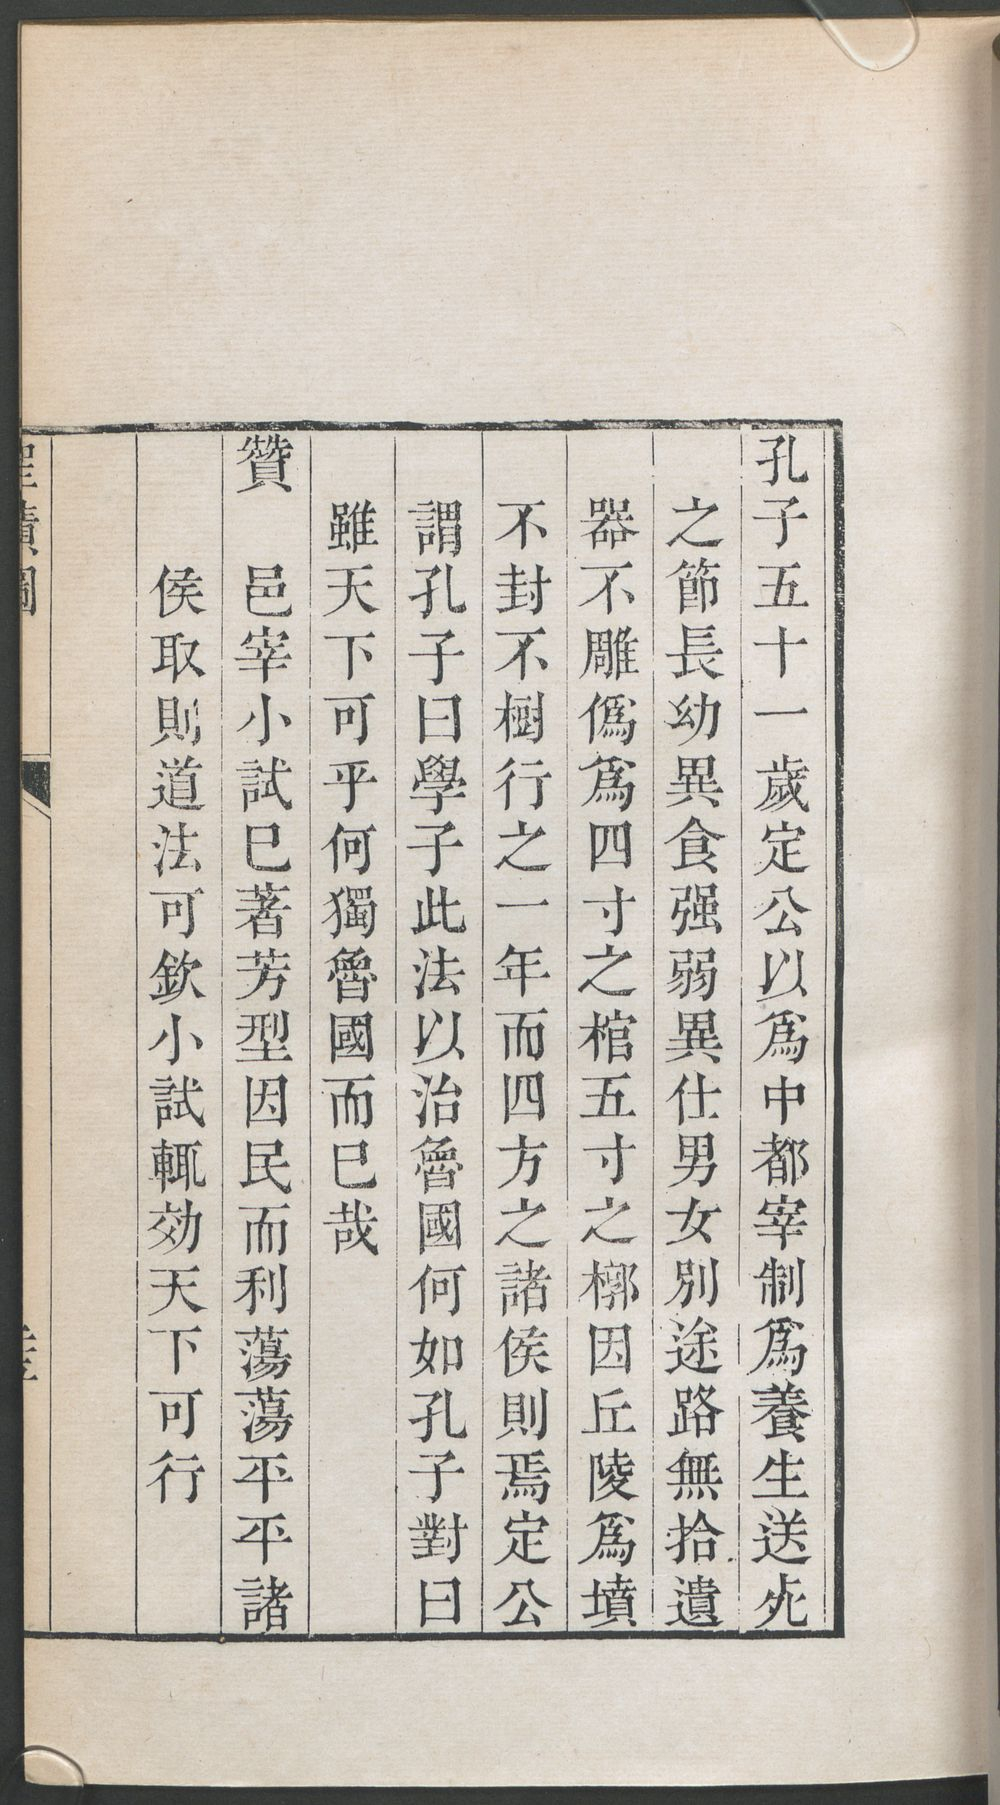 孔子五十一歲定公以爲中都宰制爲養生送死
之節長幼異食强弱異仕男女別途路無拾遺
器不雕僞爲四寸之棺五寸之槨因丘陵爲墳
不封不樹行之一年而四方之諸侯則焉定公
謂孔子曰學子此法以治魯國何如孔子對曰
雖天下可乎何獨魯國而已哉
贊 邑宰小試已著芳型因民而利蕩蕩平平諸
侯取則道法可欽小試輒効天下可行
聖蹟圖